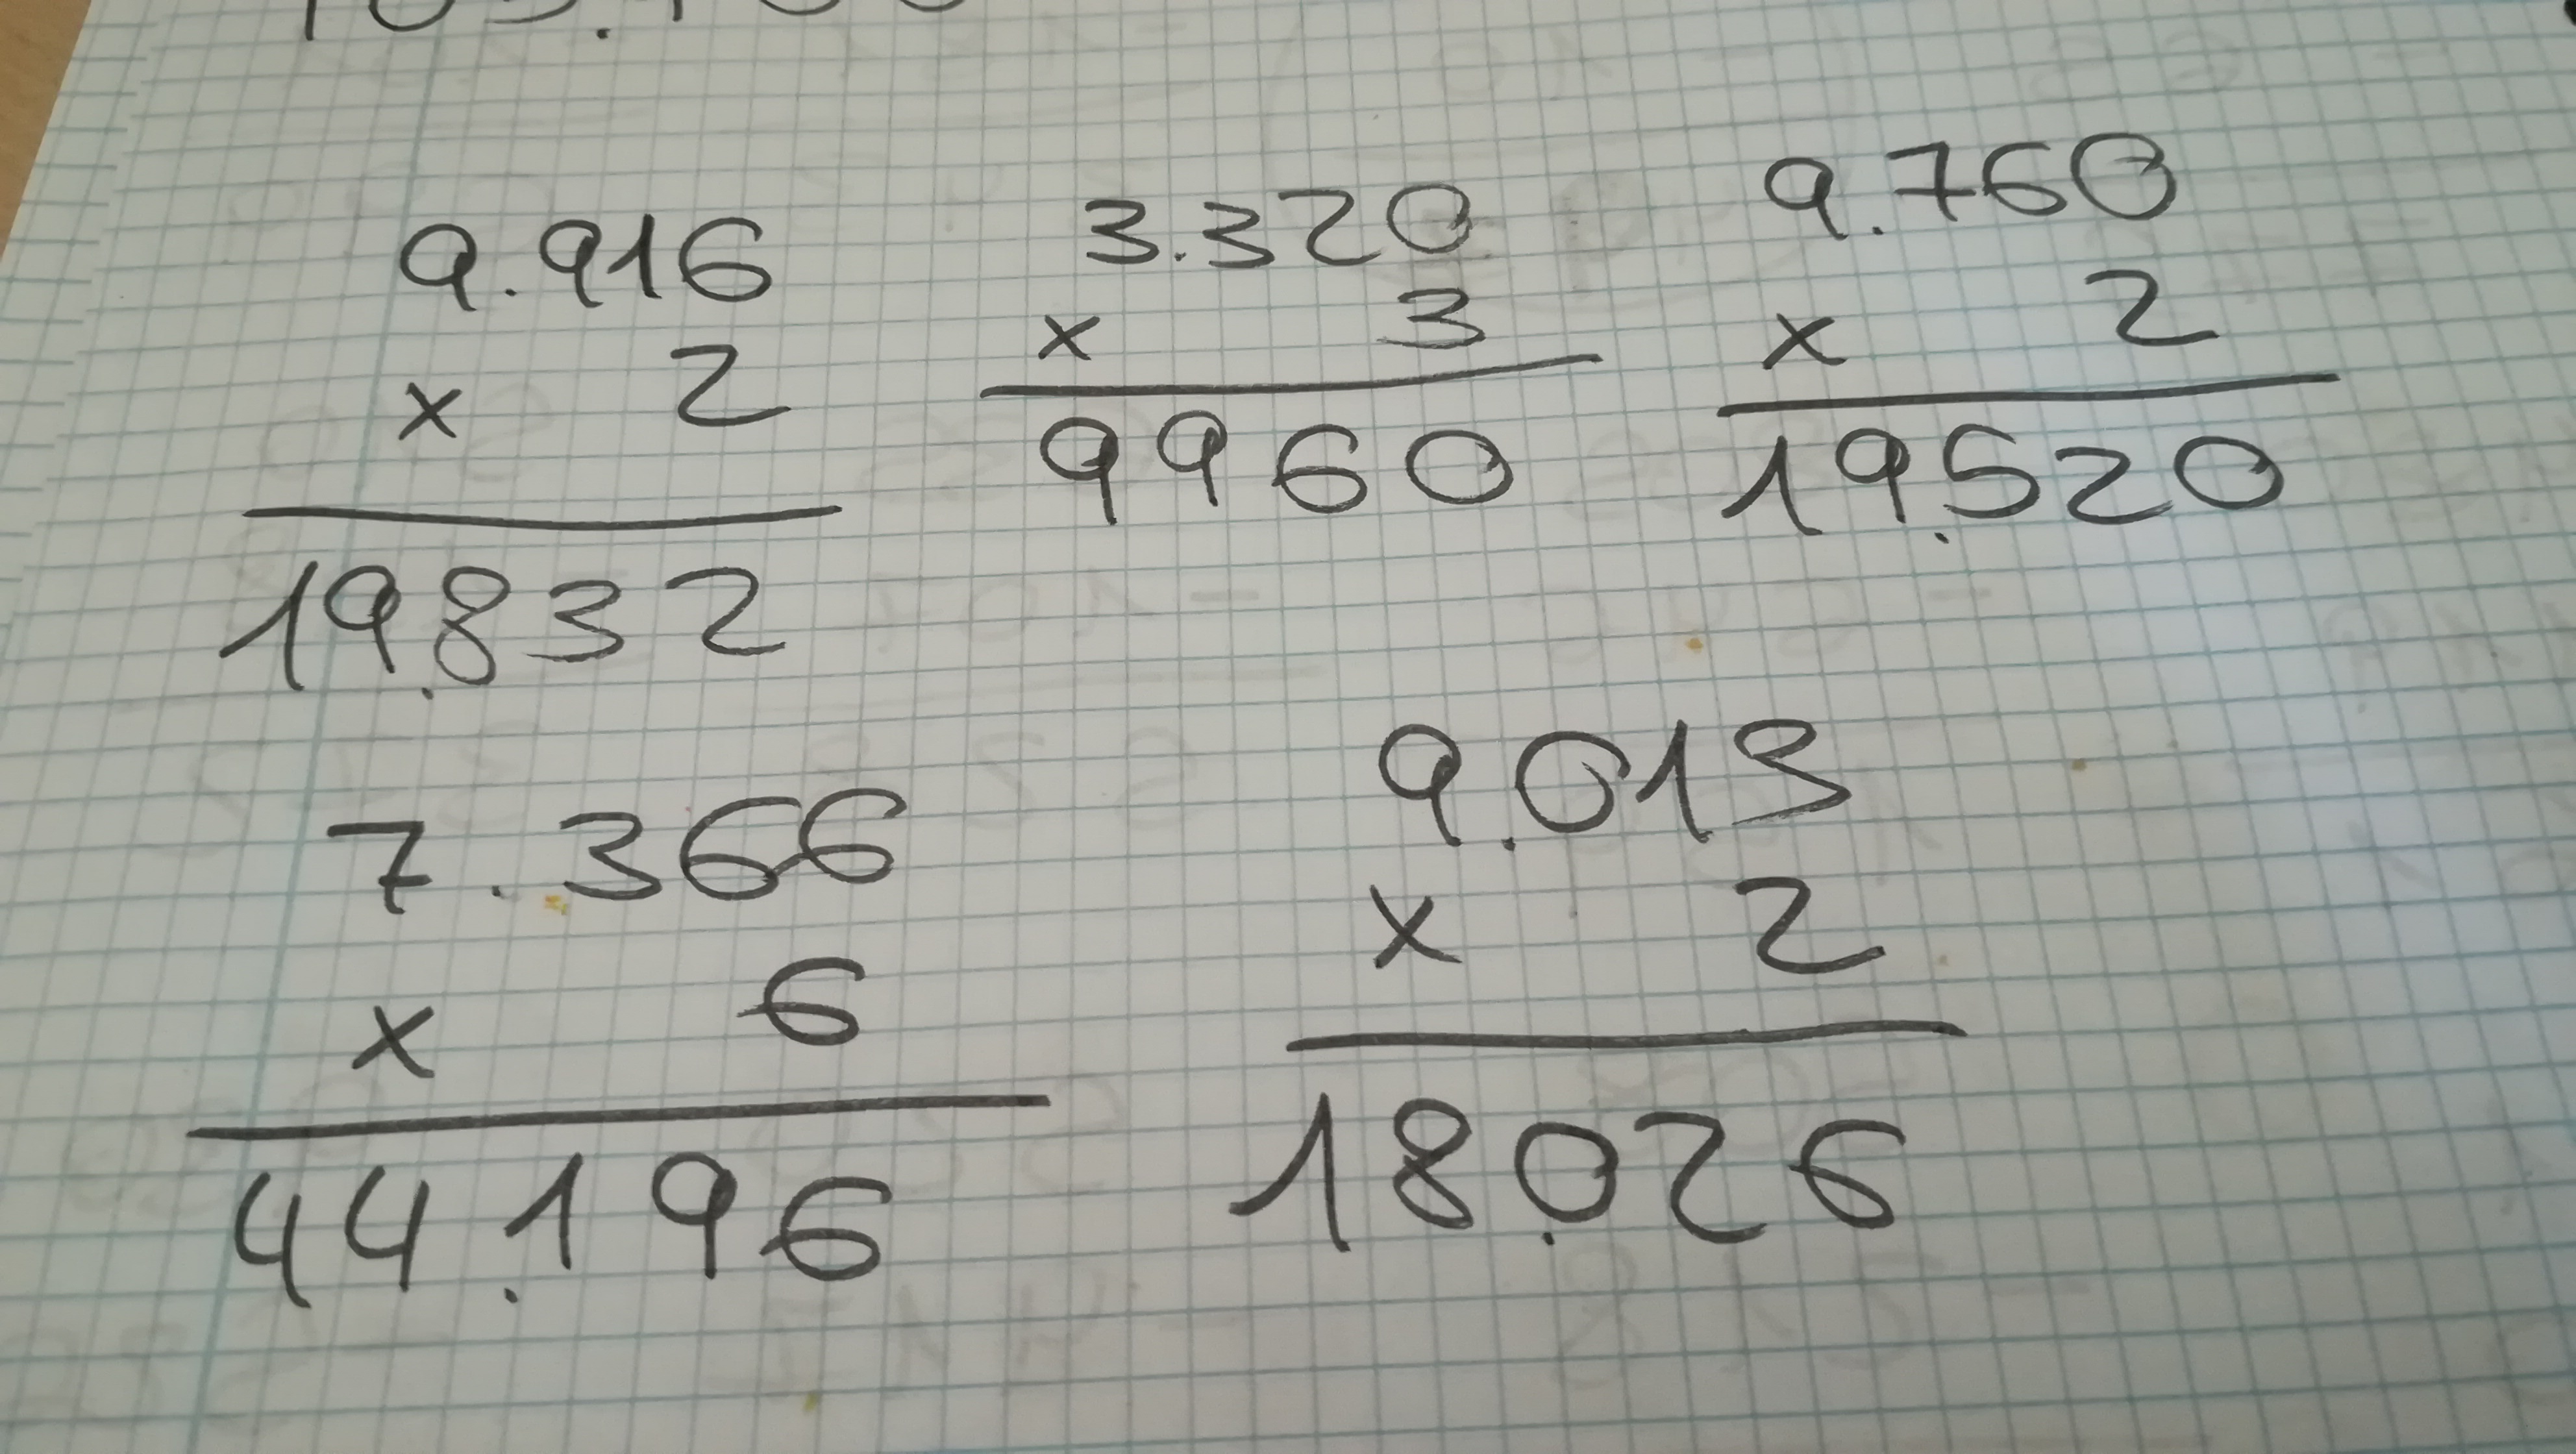 9.916
x 2
19.832
3.320
x 3
9960
9.760
x 2
19.520
7.366
x 6
44.196
9.013
x 2
18.026